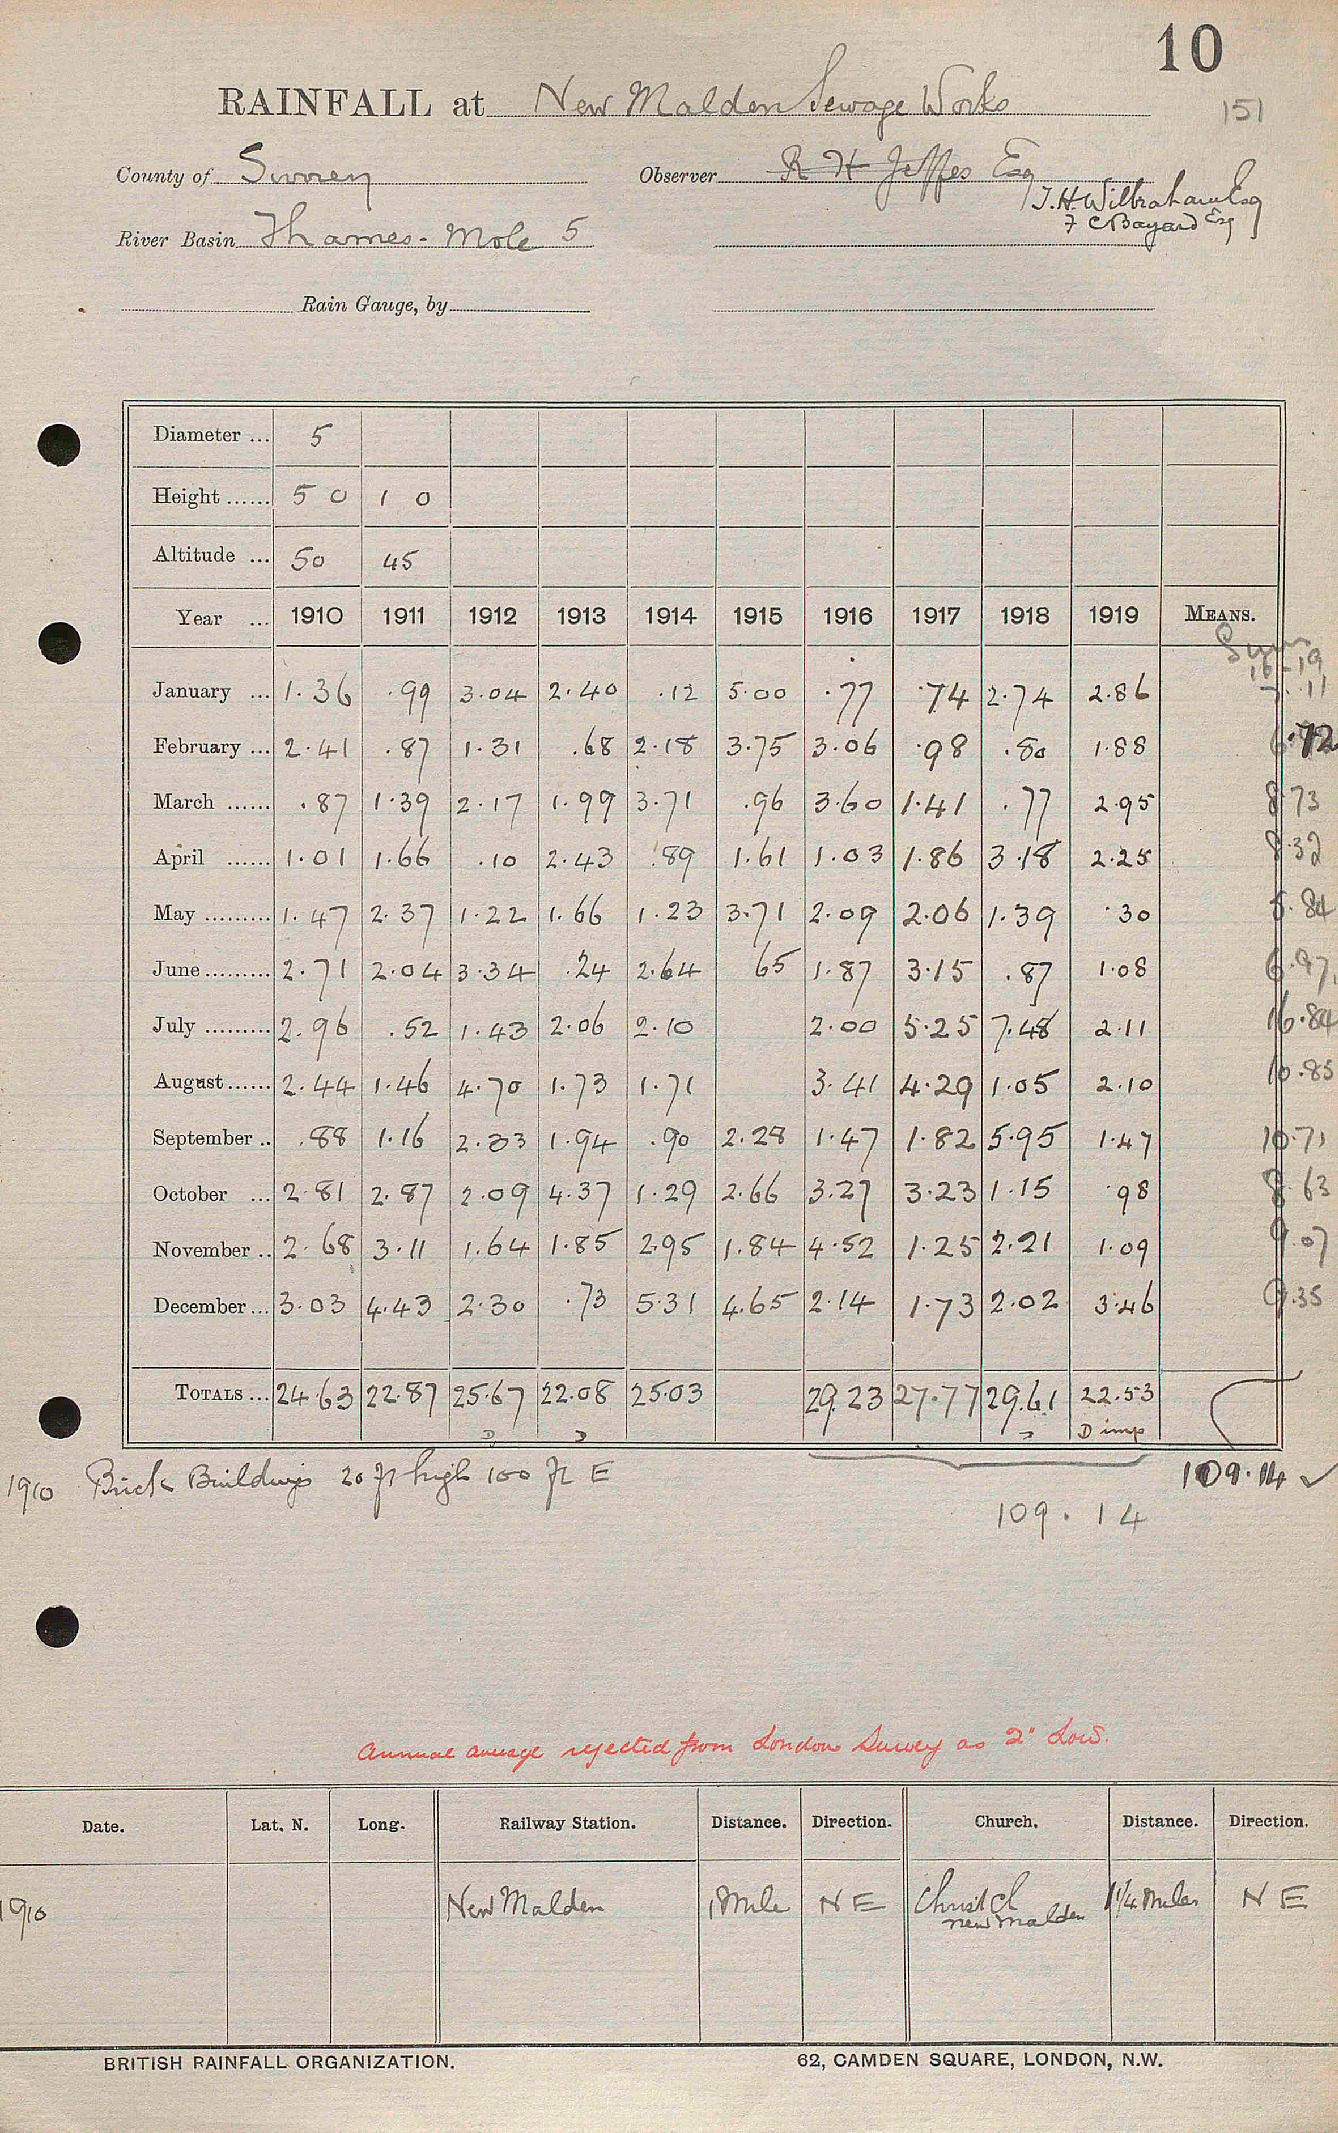 10
RAINFALL at New Malden Sewage Works
151
County of Surrey Observer R H Jeffes Esq
J. H. Wilbraham Esq
River Basin Thames - Mole 5 F C Bayard Esq
Rain Gauge, by
Diameter ... 5
Height ...... 5 0 1 0
Altitude ... 50 45
Year ... 1910 1911 1912 1913 1914 1915 1916 1917 1918 1919 MEANS.
Sum
16-19
January ... 1.36 .99 3.04 2.40 .12 5.00 .77 .74 2.74 2.86 7.11
February ... 2.41 .87 1.31 .68 2.18 3.75 3.06 .98 .80 1.88 6.72
March ...... .87 1.39 2.17 1.99 3.71 .96 3.60 1.41 .77 2.95 8.73
April ...... 1.01 1.66 .10 2.43 .89 1.61 1.03 1.86 3.18 2.25 8.32
May ......... 1.47 2.37 1.22 1.66 1.23 3.71 2.09 2.06 1.39 .30 5.84
June ......... 2.71 2.04 3.34 .24 2.64 65 1.87 3.15 .87 1.08 6.97
July ......... 2.96 .52 1.43 2.06 2.10 2.00 5.25 7.48 2.11 16.84
August ...... 2.44 1.46 4.70 1.73 1.71 3.41 4.29 1.05 2.10 10.85
September .. .88 1.16 2.33 1.94 .90 2.28 1.47 1.82 5.95 1.47 10.71
October ... 2.81 2.87 2.09 4.37 1.29 2.66 3.27 3.23 1.15 .98 8.63
November .. 2.68 3.11 1.64 1.85 2.95 1.84 4.52 1.25 2.21 1.09 9.07
December ... 3.03 4.43 2.30 .73 5.31 4.65 2.14 1.73 2.02 3.46 9.35
TOTALS ... 24.63 22.87 25.67 22.08 25.03 29.23 27.77 29.61 22.53
D D D D imp
1910 Brick Buildings 20 ft high 100 ft E 109.14 ✓
109.14
Annual average rejected from London Survey as 2" Low.
Date. Lat. N. Long. Railway Station. Distance. Direction. Church. Distance. Direction.
1910 New Malden 1 Mile N E Christ Ch 1 1/4 Miles N E
New Malden
BRITISH RAINFALL ORGANIZATION. 62, CAMDEN SQUARE, LONDON, N.W.